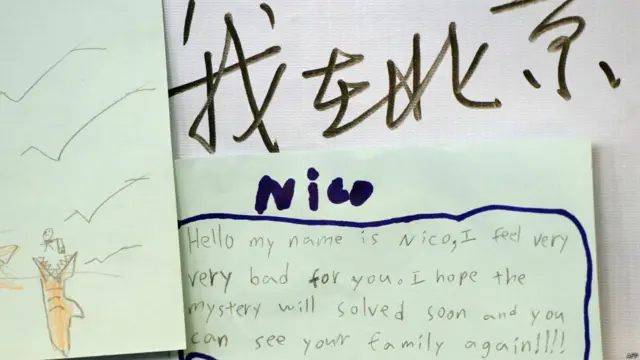 我在北京
Nico
Hello my name is Nico, I feel very
very bad for you. I hope the
mystery will solved soon and you
can see your family again!!!!
AFP